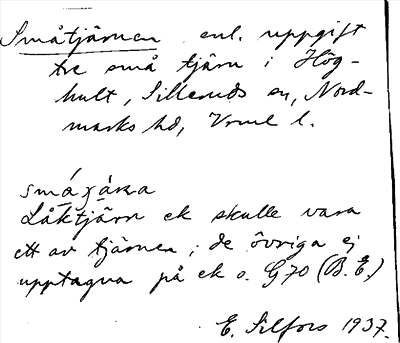 Småtjärnen enl. uppgift
tre små tjärn i Hög-
hult, Silleruds sn, Nord-
marks hd, Vrml l.
Låktjärn ek skulle vara
ett av tjärnen; de övriga ej
upptagna på ek o. G70 (B.E.)
E. Silfors 1937.